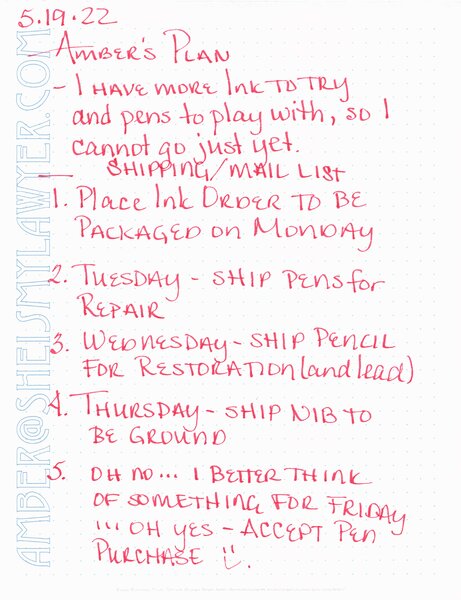 5.19.22
- AMBER'S PLAN
- I HAVE MORE INK TO TRY
and pens to play with, so I
cannot go just yet.
— SHIPPING/MAIL LIST
1. Place Ink ORDER TO BE
PACKAGED on MONDAY
2. TUESDAY - SHIP PENS for
REPAIR
3. WEDNESDAY - SHIP PENCIL
FOR RESTORATION (and lead)
4. THURSDAY - SHIP NIB TO
BE GROUND
5. OH NO... I BETTER THINK
OF SOMETHING FOR FRIDAY
!!! OH YES - ACCEPT PEN
PURCHASE
AMBER@SHEISMYLAWYER.COM